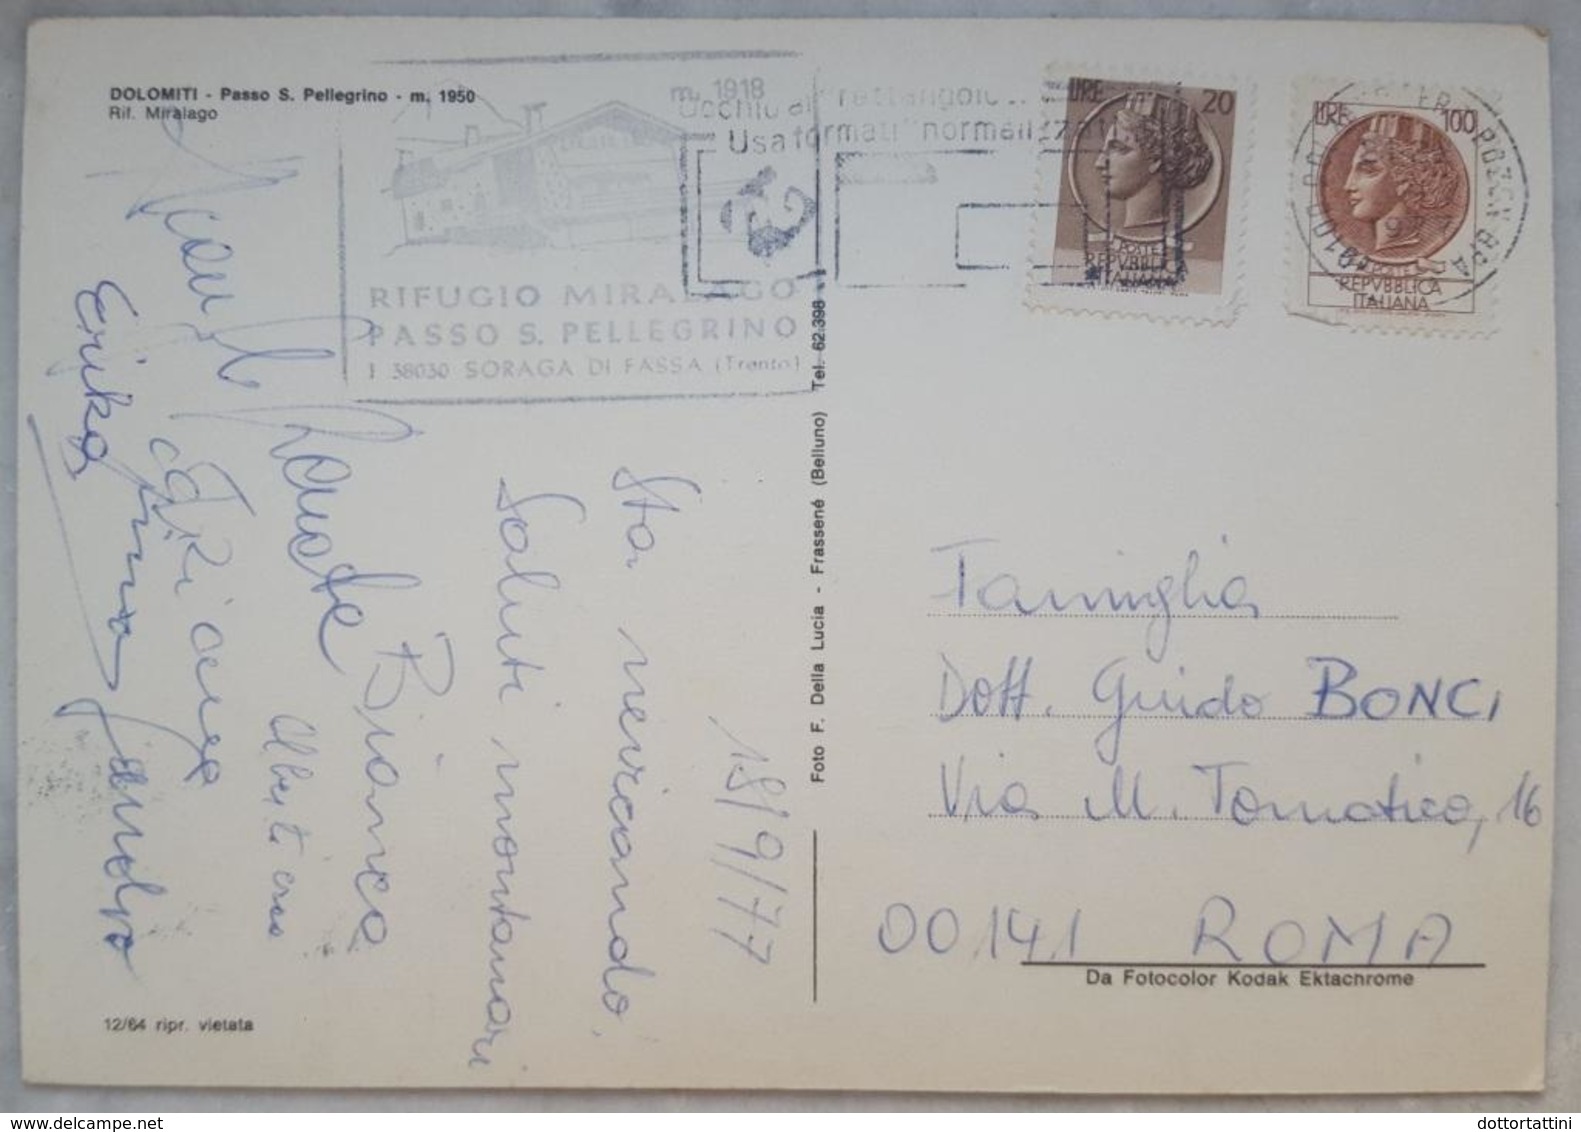 DOLOMITI - Passo S. Pellegrino - m. 1950
Rif. Miralago
m. 1918
RIFUGIO MIRALAGO
PASSO S. PELLEGRINO
I 38030 SORAGA DI FASSA (Trento)
Occhio al rettangolo..
Usa formati normalizzati
LIRE 20
POSTE
REPVBBLICA
ITALIANA
LIRE 100
POSTE
REPVBBLICA
ITALIANA
18/9/77
Sta nevicando.
Saluti montanari
Bianca
Erika
Sandro
Foto F. Della Lucia - Frassené (Belluno) Tel. 62.398
Famiglia
Dott. Guido BONCI
Via M. Tomatico, 16
00141 ROMA
Da Fotocolor Kodak Ektachrome
12/64 ripr. vietata
dottortattini